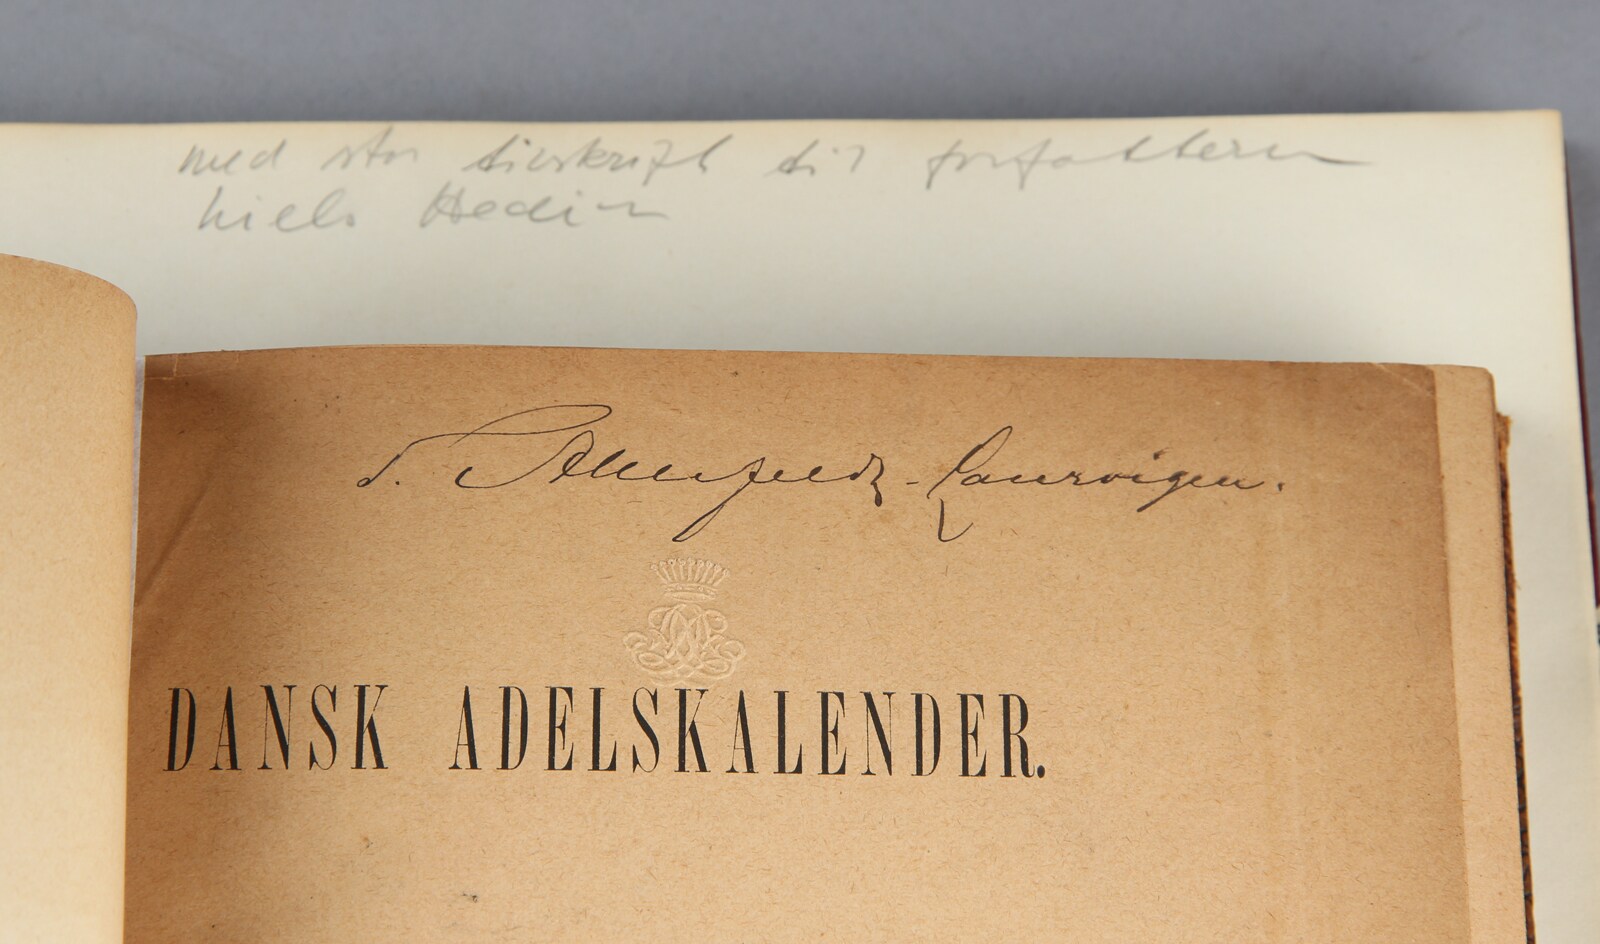 med stor til forfatteren
Niels Hedin
Ahlefeldt-Laurvigen.
DANSK ADELSKALENDER.